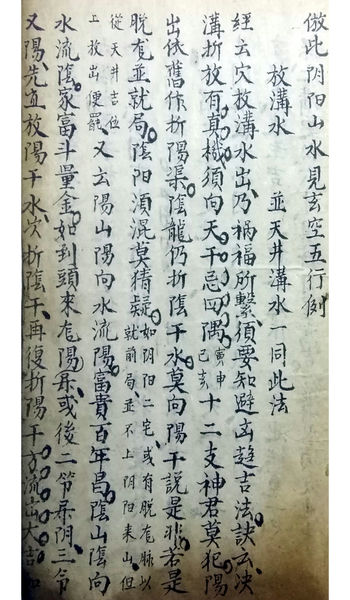 倣此阴阳山水見玄空五行例
放溝水 並天井溝水一同此法
經云穴放溝水出乃禍福所繫須要知避凶趋吉法訣云决
溝折放有真機須向天干忌四隅寅申巳亥十二支神君莫犯陽
出依舊作折陽渠陰龍仍折陰干水莫向陽干說是非若是
脱龙並就局陰阳須混莫猜疑如阴阳二宅或有脱龙脉以就前局並不上阴阳来山但
從天井吉位上放出便罷又云陽山陽向水流陽富貴百年昌陰山陰向
水流陰家富斗量金如到頭來龙陽氣或後二節氣阴三節
又陽先直放陽干水穴折陰干再復折陽干方流出大吉如